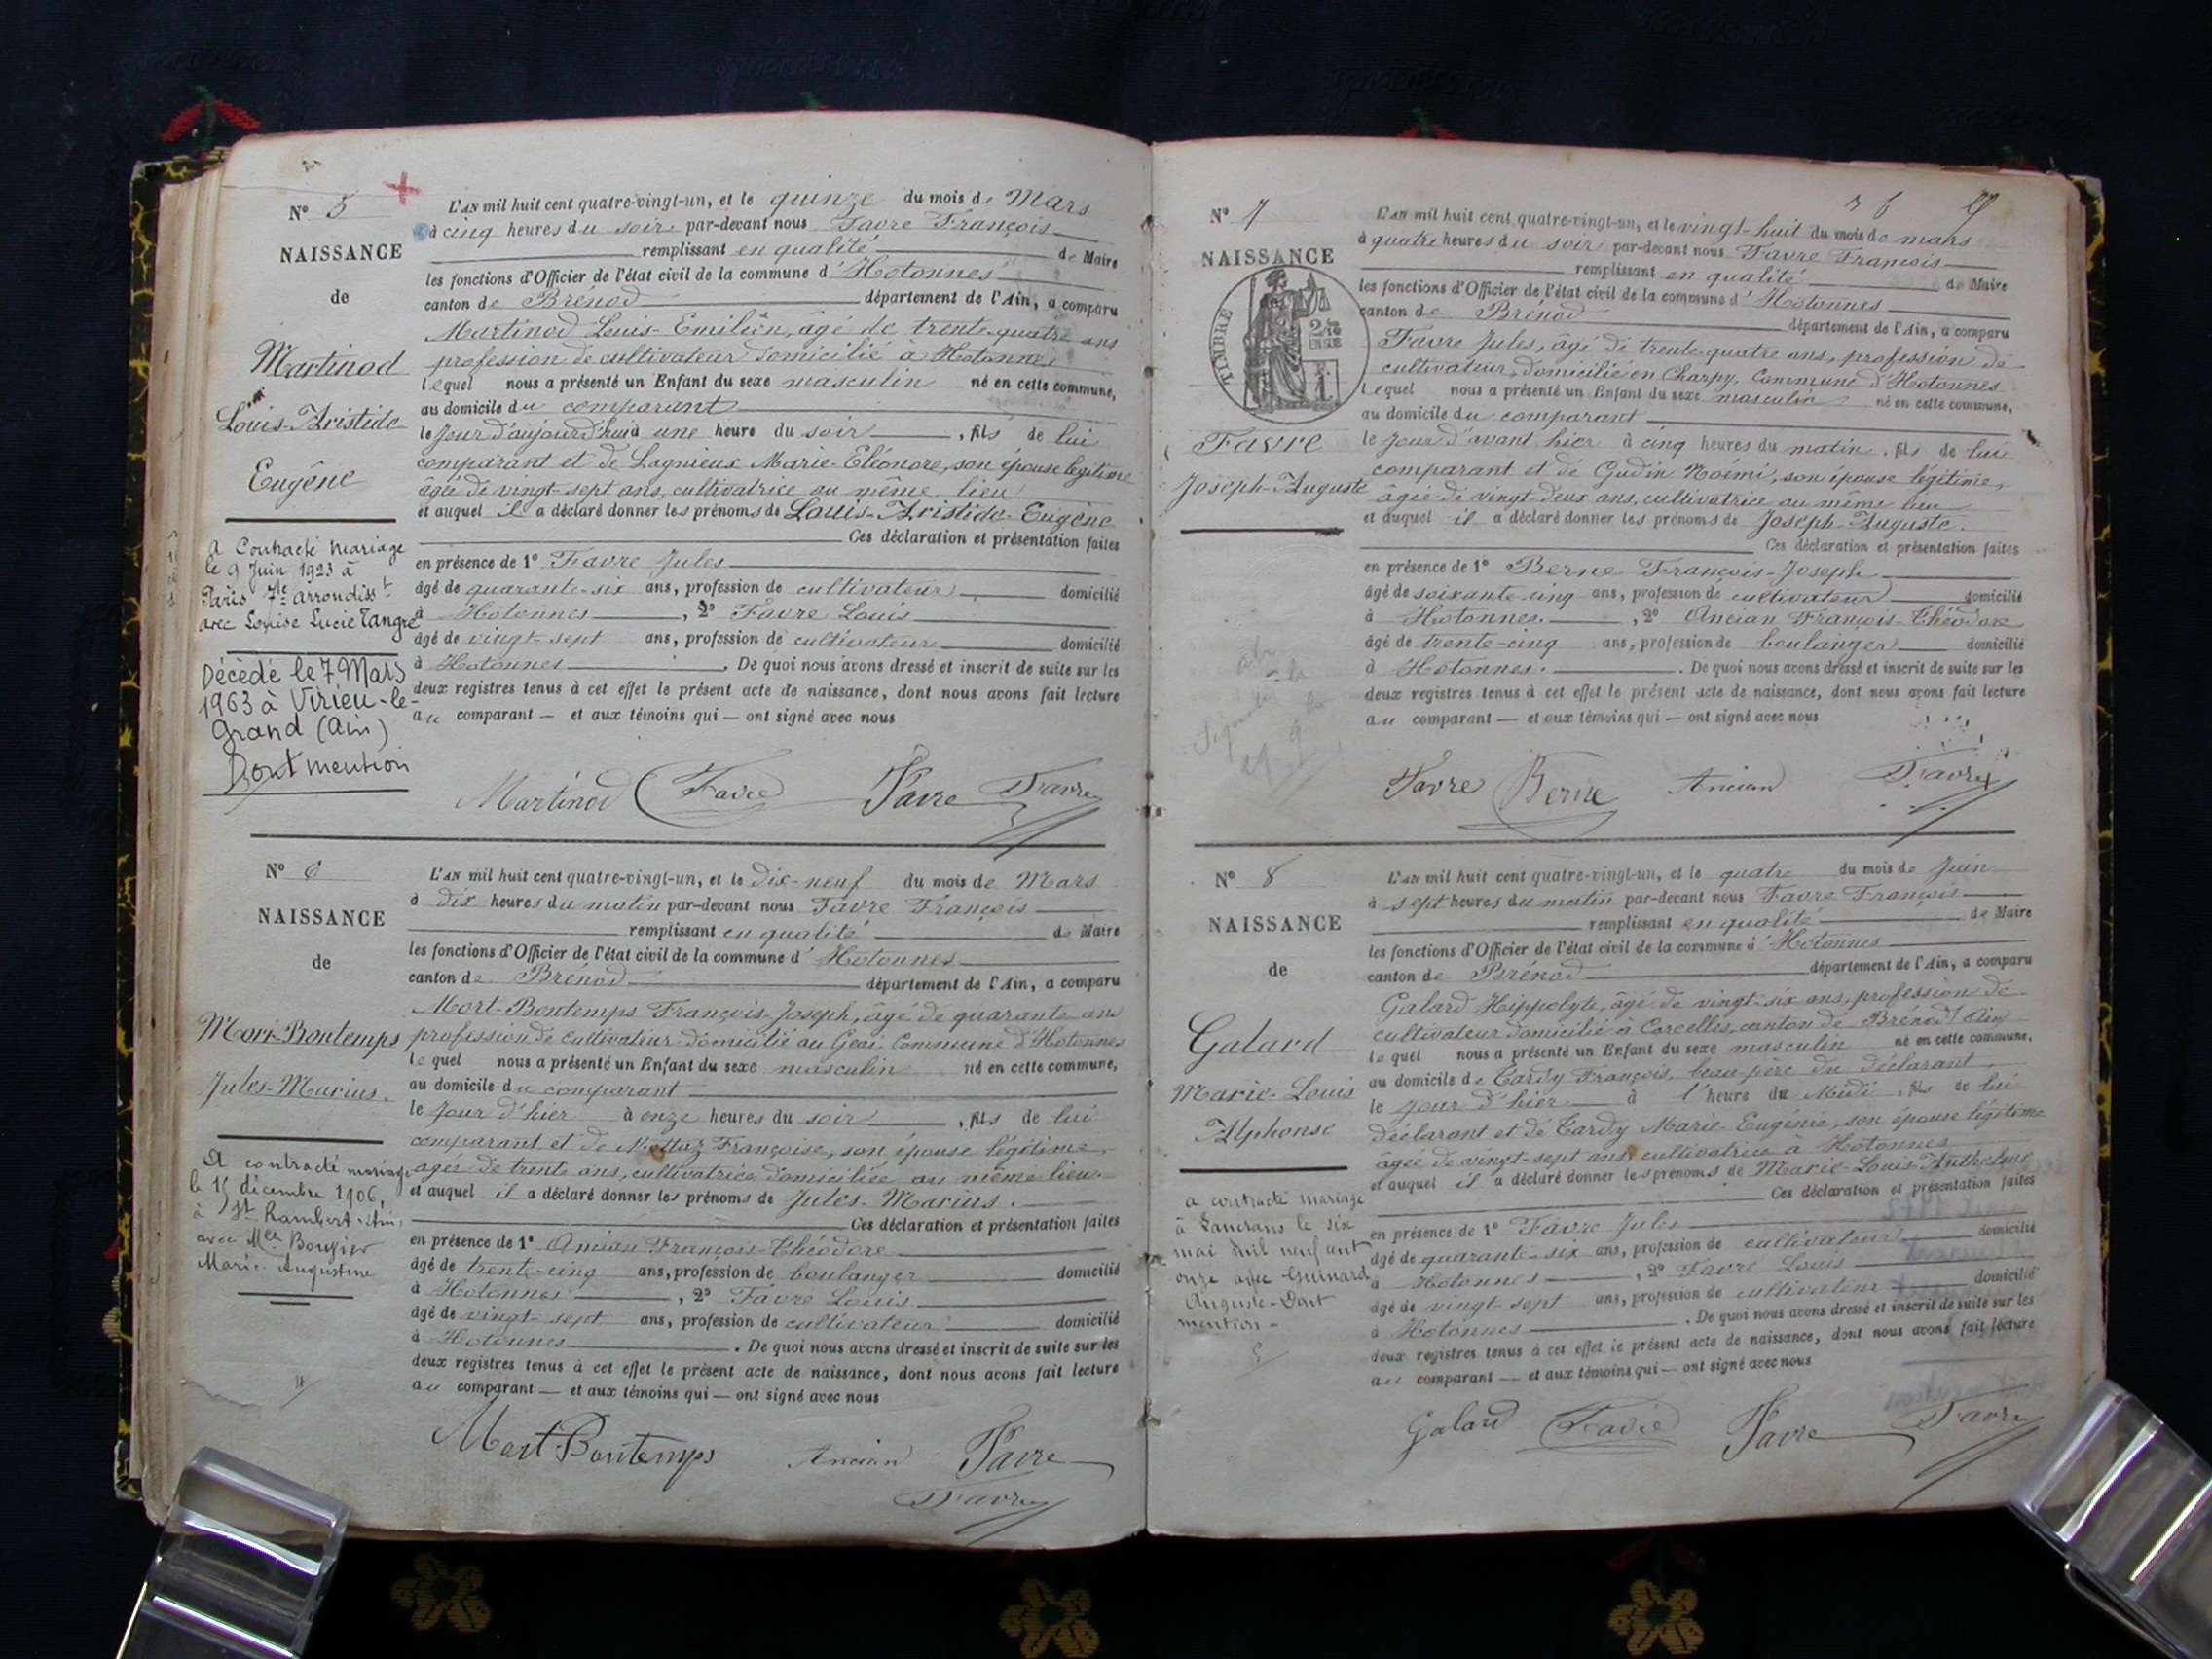 N° 5
NAISSANCE
de
Martinod
Louis-Aristide
Eugène
a Contracté mariage
le 9 Juin 1923 à
Paris 7e arrondisst
avec Louise Lucie Tangre
Décédé le 7 Mars
1963 à Virieu-le-
Grand (Ain)
Dont mention
L'AN mil huit cent quatre-vingt-un, et le quinze du mois de Mars
à cinq heures du soir par-devant nous Favre François
remplissant en qualité de Maire
les fonctions d'Officier de l'état civil de la commune d'Hotonnes
canton de Brénod département de l'Ain, a comparu
Martinod Louis-Emilien, âgé de trente-quatre ans
profession de cultivateur domicilié à Hotonnes
lequel nous a présenté un Enfant du sexe masculin né en cette commune,
au domicile du comparant
le Jour d'aujourd'hui à une heure du soir, fils de lui
comparant et de Lagnieux Marie-Eléonore, son épouse légitime
âgée de vingt-sept ans, cultivatrice au même lieu
et auquel il a déclaré donner les prénoms de Louis-Aristide-Eugène
Ces déclaration et présentation faites
en présence de 1° Favre Jules
âgé de quarante-six ans, profession de cultivateur domicilié
à Hotonnes, 2° Favre Louis
âgé de vingt-sept ans, profession de cultivateur domicilié
à Hotonnes. De quoi nous avons dressé et inscrit de suite sur les
deux registres tenus à cet effet le présent acte de naissance, dont nous avons fait lecture
au comparant — et aux témoins qui — ont signé avec nous
Martinod Favre Favre Favre
N° 6
NAISSANCE
de
Mort-Bontemps
Jules-Marius.
A contracté mariage
le 15 décembre 1906,
à St Rambert-Ain,
avec Melle Bougier
Marie-Augustine
L'AN mil huit cent quatre-vingt-un, et le dix-neuf du mois de Mars
à dix heures du matin par-devant nous Favre François
remplissant en qualité de Maire
les fonctions d'Officier de l'état civil de la commune d'Hotonnes
canton de Brénod département de l'Ain, a comparu
Mort-Bontemps François-Joseph, âgé de quarante ans
profession de cultivateur domicilié au Geai, Commune d'Hotonnes
lequel nous a présenté un Enfant du sexe masculin né en cette commune,
au domicile du comparant
le Jour d'hier à onze heures du soir, fils de lui
comparant et de Mottaz Françoise, son épouse légitime,
âgée de trente ans, cultivatrice domiciliée au même lieu
et auquel il a déclaré donner les prénoms de Jules-Marius.
Ces déclaration et présentation faites
en présence de 1° Ancian François-Théodore
âgé de trente-cinq ans, profession de boulanger domicilié
à Hotonnes, 2° Favre Louis
âgé de vingt-sept ans, profession de cultivateur domicilié
à Hotonnes. De quoi nous avons dressé et inscrit de suite sur les
deux registres tenus à cet effet le présent acte de naissance, dont nous avons fait lecture
au comparant — et aux témoins qui — ont signé avec nous
Mort Bontemps Ancian Favre
Favre
N° 7
NAISSANCE
TIMBRE
Favre
Joseph-Auguste
L'AN mil huit cent quatre-vingt-un, et le vingt-huit du mois de mars
à quatre heures du soir par-devant nous Favre François
remplissant en qualité de Maire
les fonctions d'Officier de l'état civil de la commune d'Hotonnes
canton de Brénod département de l'Ain, a comparu
Favre Jules, âgé de trente-quatre ans, profession de
cultivateur, domicilié en Charpy, Commune d'Hotonnes
lequel nous a présenté un Enfant du sexe masculin né en cette commune,
au domicile du comparant
le Jour d'avant hier à cinq heures du matin, fils de lui
comparant et de Gudin Noémi, son épouse légitime,
âgée de vingt-deux ans, cultivatrice au même lieu
et auquel il a déclaré donner les prénoms de Joseph-Auguste.
Ces déclaration et présentation faites
en présence de 1° Berne François-Joseph
âgé de soixante-cinq ans, profession de cultivateur domicilié
à Hotonnes, 2° Ancian François-Théodore
âgé de trente-cinq ans, profession de boulanger domicilié
à Hotonnes. De quoi nous avons dressé et inscrit de suite sur les
deux registres tenus à cet effet le présent acte de naissance, dont nous avons fait lecture
au comparant — et aux témoins qui — ont signé avec nous
Favre Berne Ancian Favre
N° 8
NAISSANCE
de
Galard
Marie-Louis
Alphonse
a contracté mariage
à Lancrans le six
mai mil neuf cent
onze avec Guinard
Auguste - Dont
mention -
L'AN mil huit cent quatre-vingt-un, et le quatre du mois de Juin
à sept heures du matin par-devant nous Favre François
remplissant en qualité de Maire
les fonctions d'Officier de l'état civil de la commune d'Hotonnes
canton de Brénod département de l'Ain, a comparu
Galard Hippolyte, âgé de vingt-six ans, profession de
cultivateur domicilié à Corcelles, canton de Brénod Ain
lequel nous a présenté un Enfant du sexe masculin né en cette commune,
au domicile de Tardy François, beau-père du déclarant
le Jour d'hier à l'heure du Midi, fils de lui
déclarant et de Tardy Marie-Eugénie, son épouse légitime
âgée de vingt-sept ans, cultivatrice à Hotonnes
et auquel il a déclaré donner les prénoms de Marie-Louis-Anthelme
Ces déclaration et présentation faites
en présence de 1° Favre Jules
âgé de quarante-six ans, profession de cultivateur domicilié
à Hotonnes, 2° Favre Louis
âgé de vingt-sept ans, profession de cultivateur domicilié
à Hotonnes. De quoi nous avons dressé et inscrit de suite sur les
deux registres tenus à cet effet le présent acte de naissance, dont nous avons fait lecture
au comparant — et aux témoins qui — ont signé avec nous
Galard Favre Favre Favre